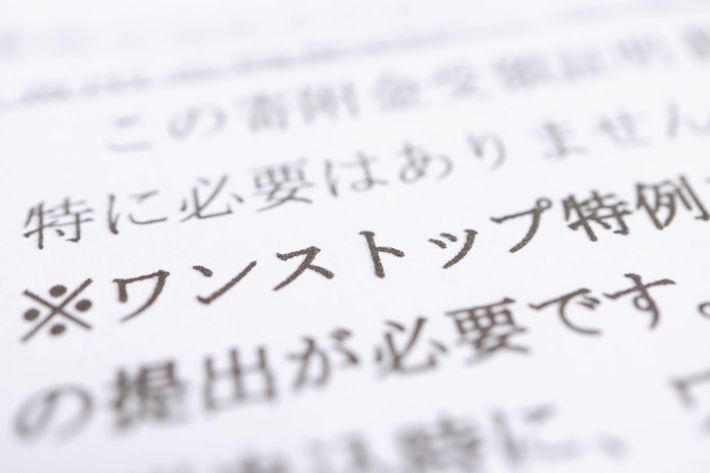 この寄附金受領証明
特に必要はありません
※ワンストップ特例
の提出が必要です。
込時に、